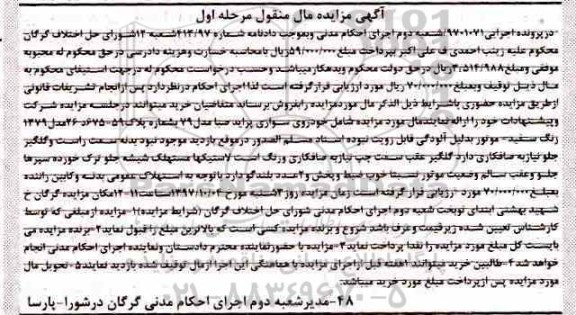 آگهی مزایده مال منقول مرحله اول
درپرونده اجرایی ۹۷۰۱۰۷۱ شعبه دوم اجرای احکام مدنی وبموجب دادنامه شماره ۴۱۳/۹۷ شعبه ۱۴ شورای حل اختلاف گرگان
محکوم علیه زینب احمدی ف علی اکبر بپرداخت مبلغ ۵۹/۰۰۰/۰۰۰ ریال بامحاسبه خسارت وهزینه دادرسی در حق محکوم له محبوبه
موفقی ومبلغ ۳/۵۱۴/۹۸۸ ریال در حق دولت محکوم وبدهکار میباشد وحسب درخواست محکوم له درجهت استیفای محکوم به
مال ذیل توقیف وبمبلغ ۷۰/۰۰۰/۰۰۰ ریال مورد ارزیابی قرار گرفته است لذا اجرای احکام درنظر دارد پس از انجام تشریفات قانونی
از طریق مزایده حضوری باشرایط ذیل الذکر مال مورد مزایده رابفروش برساند متقاضیان خرید میتوانند درجلسه مزایده شرکت
وپیشنهادات خود را ارائه نمایند مال مورد مزایده شامل خودروی سواری پراید صبا مدل ۷۹ بشماره پلاک ۵۹-۶۷۵د۲۶ مدل ۱۳۷۹
رنگ سفید- موتور بدلیل آلودگی قابل رویت نبوده اسناد مسلم الصدور درموقع بازدید موجود نبود بدنه سمت راست وگلگیر
جلو نیاز به صافکاری دارد گلگیر عقب سمت چپ نیاز به صافکاری و رنگ است لاستیکها مستهلک شیشه جلو ترک خورده سپرها
جلو وعقب سالم وضعیت موتور نسبتا خوب ضبط وپخش و۲عدد بلندگو دارد با توجه به استهلاک عمومی بدنه وکابین راننده
بمبلغ ۷۰/۰۰۰/۰۰۰ مورد ارزیابی قرار گرفته است. زمان مزایده روز ۳شنبه مورخ ۱۳۹۷/۱۰/۰۴ ساعت ۱۱-۱۲ مکان مزایده گرگان خ
شهید بهشتی ابتدای نوبخت شعبه دوم اجرای احکام مدنی شورای حل اختلاف گرگان (شرایط مزایده) ۱- مزایده از مبلغی که توسط
کارشناس تعیین شده زیر قیمت و عرف باشد شروع و برنده مزایده کسی است که بالاترین مبلغ را قبول نماید ۲- برنده مزایده می
بایست کل مبلغ مورد مزایده را نقدا پرداخت نماید ۳- مزایده با حضور نماینده محترم دادستان ونماینده اجرای احکام مدنی انجام
خواهد شد ۴- طالبین خرید میتوانند هفته قبل از اجرای مزایده با هماهنگی این اجرا از مال توقیف شده بازدید نمایند ۵- تحویل مال
مورد مزایده پس از پرداخت مبلغ مورد خرید میباشد.
۴۸-مدیرشعبه دوم اجرای احکام مدنی گرگان درشورا- پارسا